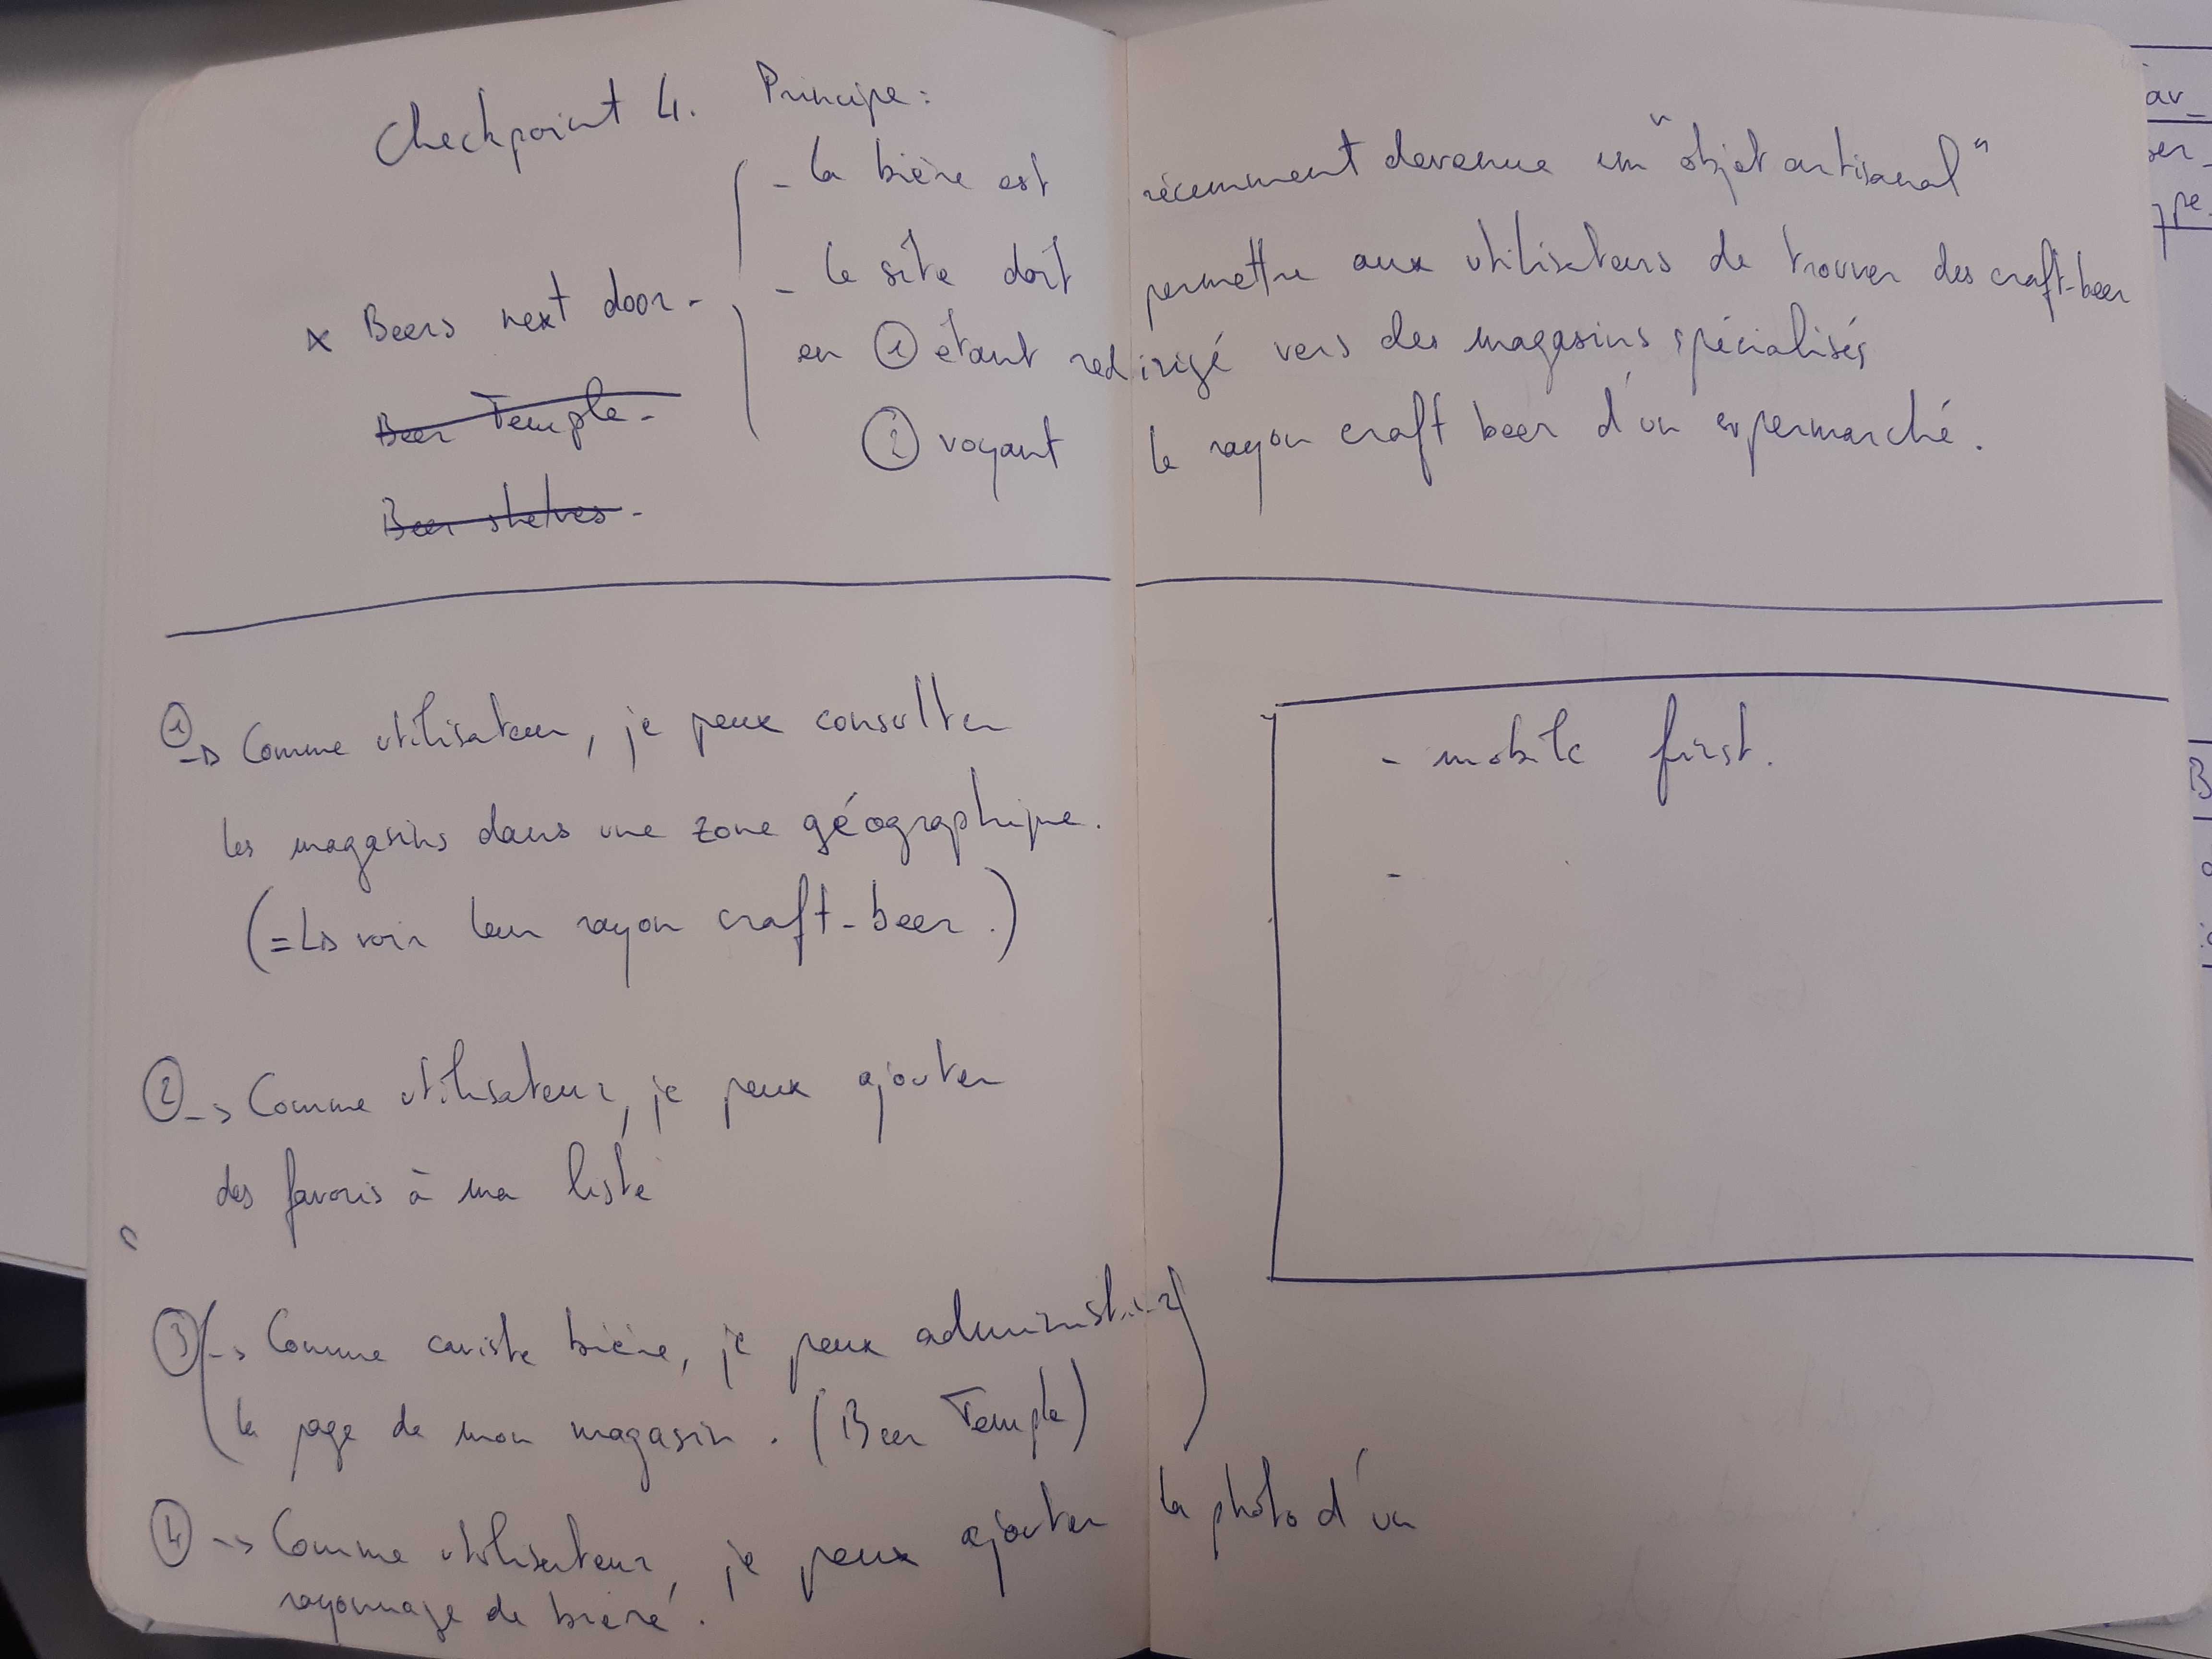 Checkpoint 4. Principe :
- la bière est récemment devenue un "objet artisanal"
- le site doit permettre aux utilisateurs de trouver des craft-beer
x Beers next door -
en ① étant redirigé vers des magasins spécialisés
Beer Temple -
② voyant le rayon craft beer d'un
Beer shelves -
① -> Comme utilisateur, je peux consulter
les magasins dans une zone géographique.
(=> voir leur rayon craft-beer.)
② -> Comme utilisateur, je peux ajouter
des favoris à ma liste
③ (-> Comme caviste bière, je peux administrer
la page de mon magasin. (Beer Temple))
④ -> Comme utilisateur, je peux ajouter la photo d'un
rayonnage de bière.
- mobile first.
-